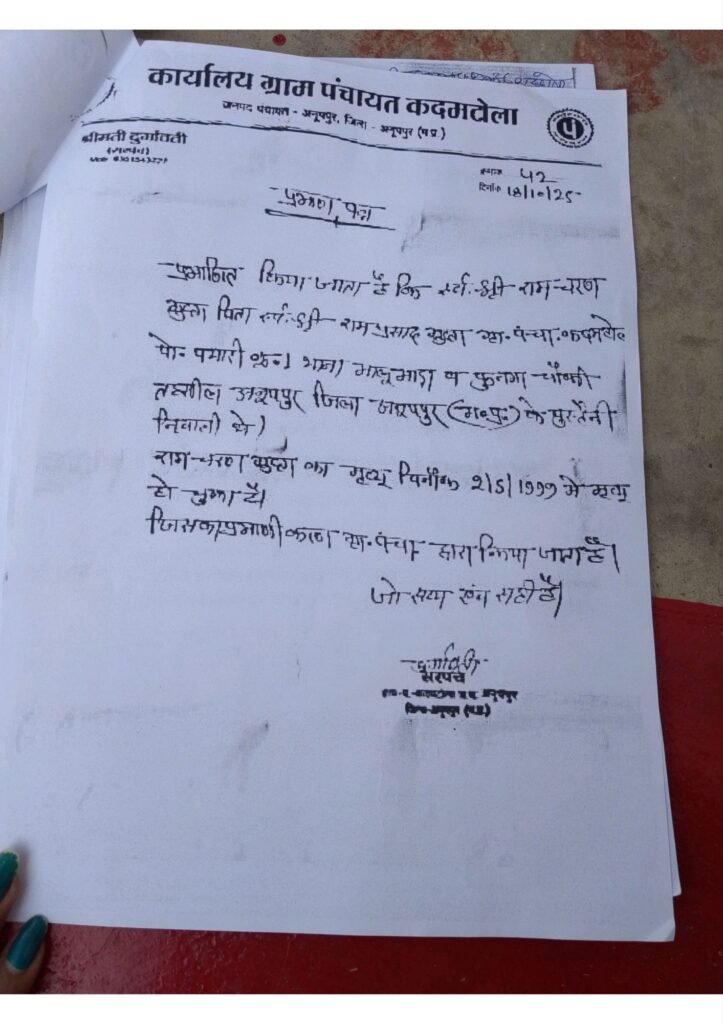 कार्यालय ग्राम पंचायत कदमटोला
जनपद पंचायत - अनूपपुर, जिला - अनूपपुर (म.प्र.)
श्रीमती दुर्गावती
(सरपंच)
क्रमांक 42
दिनांक 18/10/25
प्रमाण पत्र
प्रमाणित किया जाता है कि स्व. श्री राम-चरण
पिता स्व. श्री राम प्रसाद ग्रा. पंचा. कदमटोला
पो. पसारी थाना भालूमाडा व फुनगा चौकी
तहसील अनूपपुर जिला अनूपपुर (म.प्र.) के पुस्तैनी
निवासी थे।
राम-चरण का मृत्यु दिनाँक 2/5/1999 मे मृत्यु
हो चुका है।
जिसका प्रमाणीकरण ग्रा. पंचा. द्वारा किया जाता है।
जो सत्य एंव सही है।
दुर्गावती
सरपंच